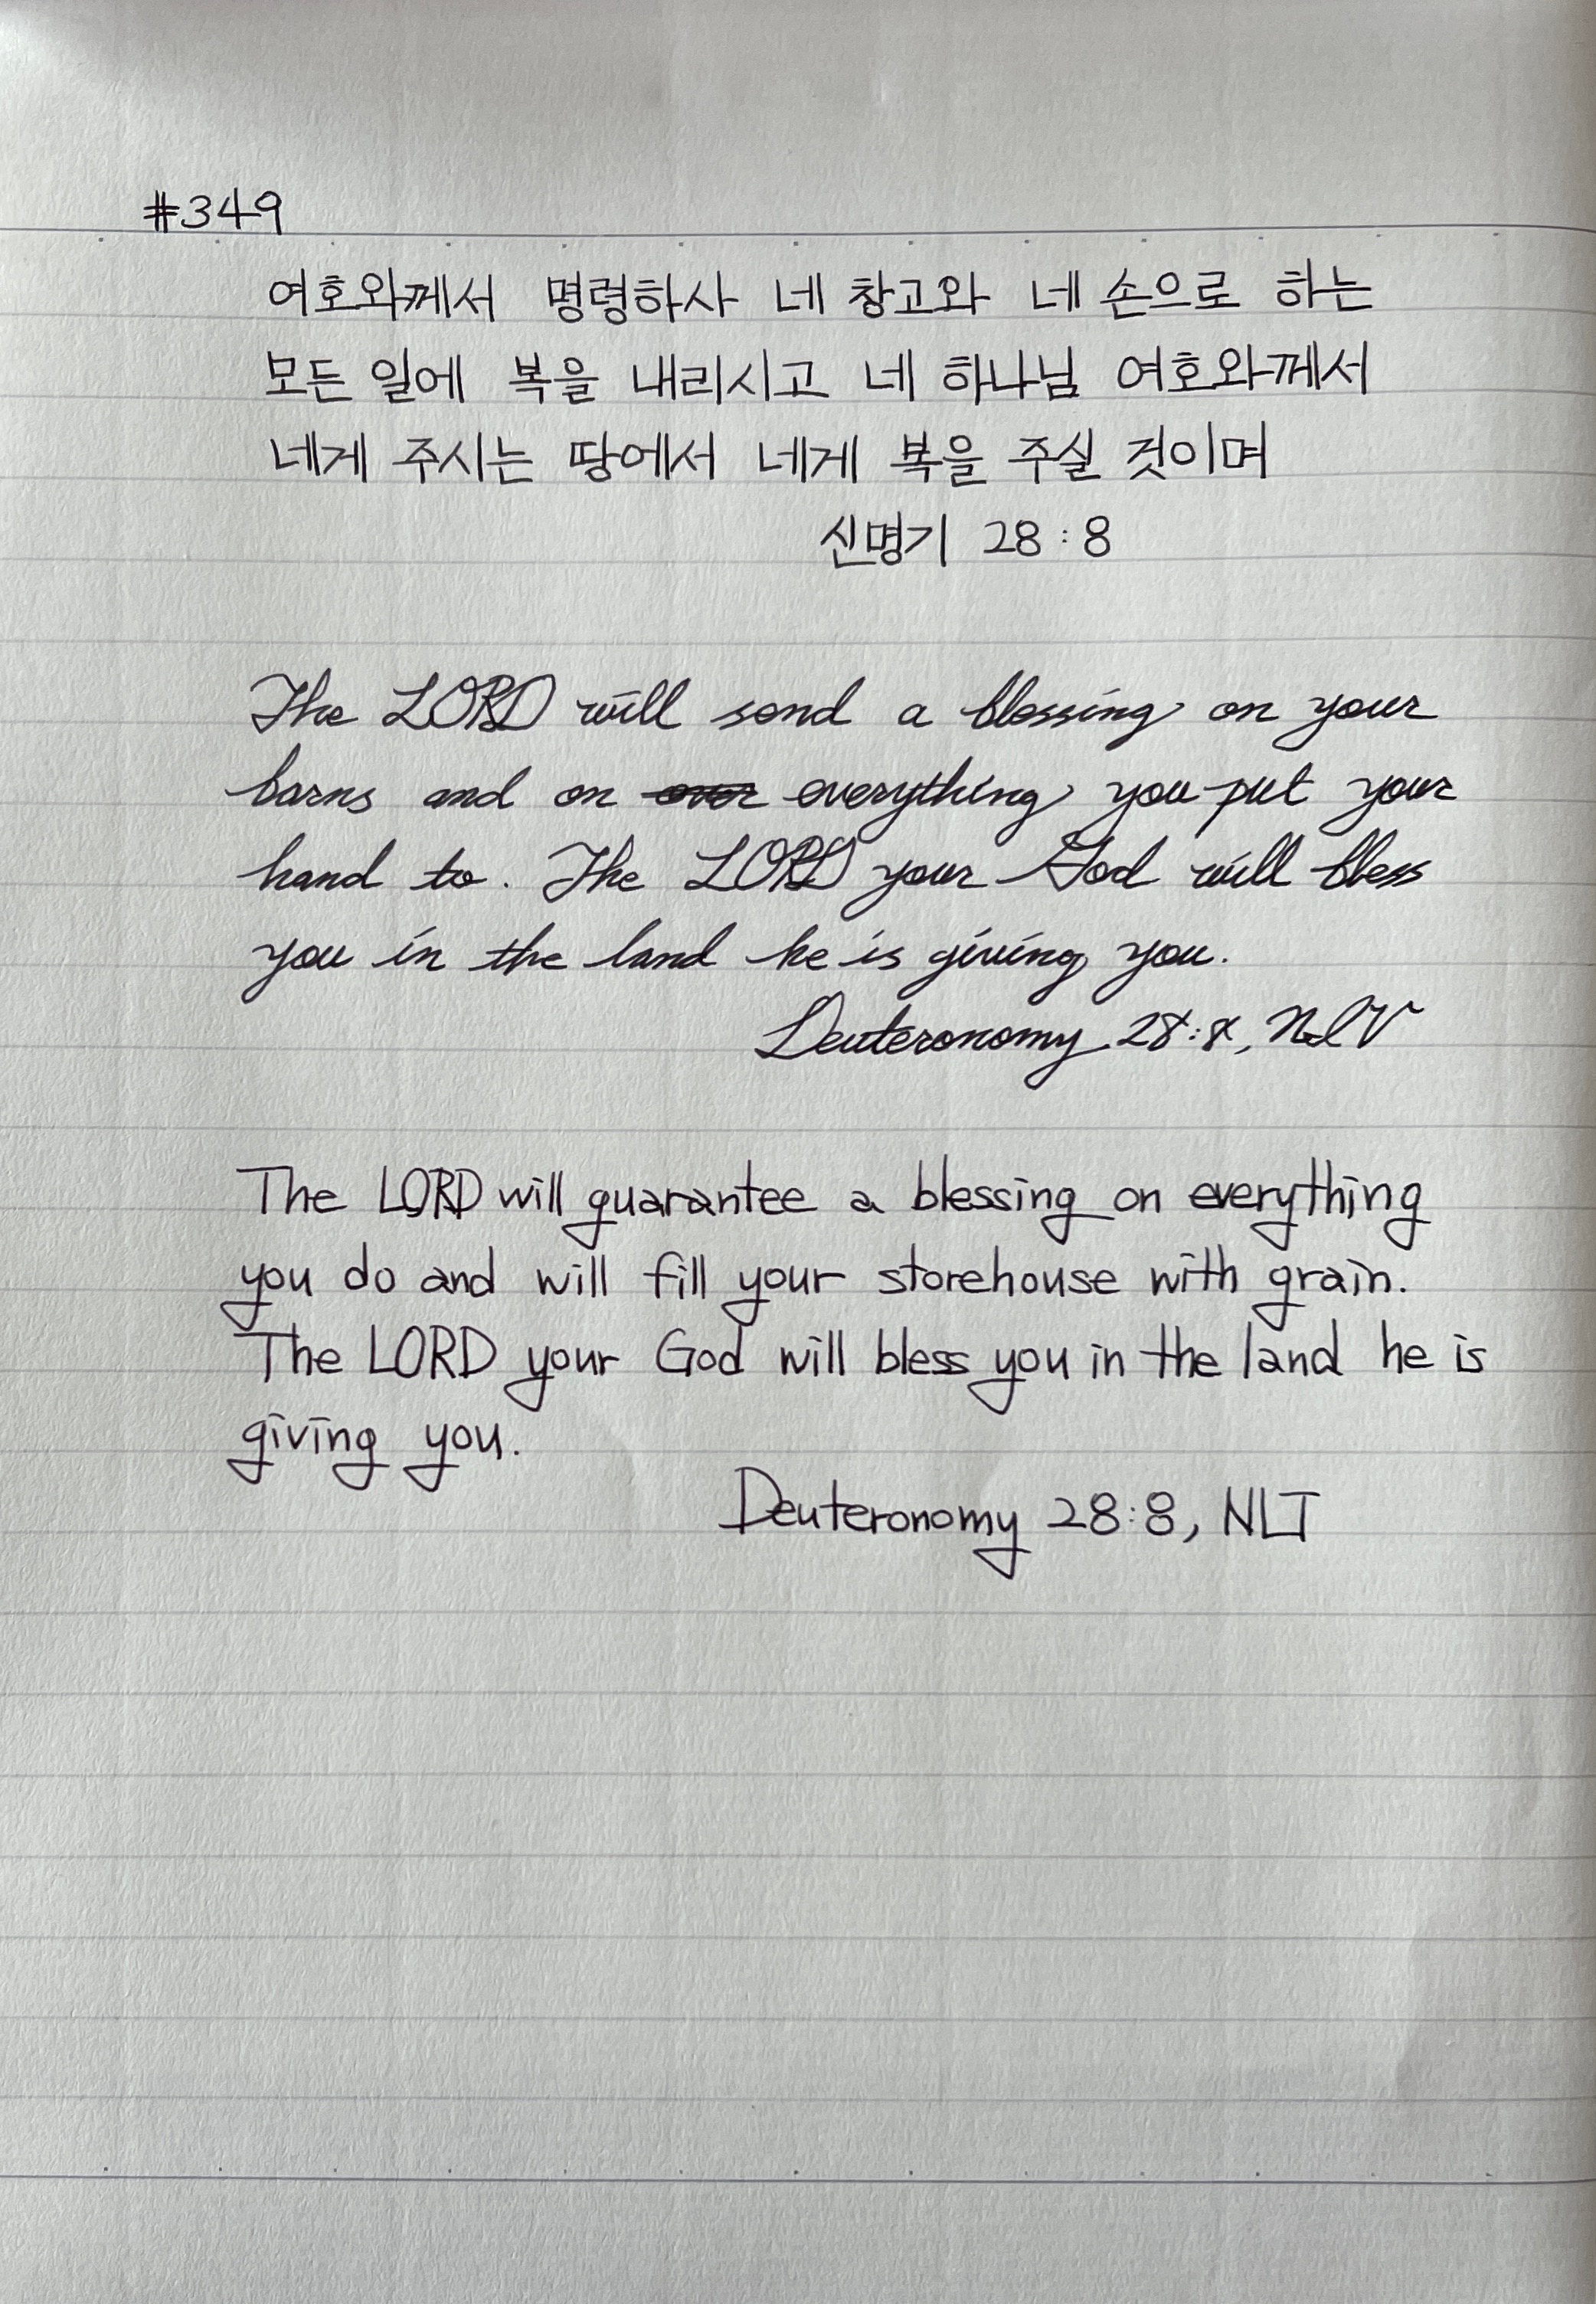 #349
여호와께서 명령하사 네 창고와 네 손으로 하는
모든 일에 복을 내리시고 네 하나님 여호와께서
네게 주시는 땅에서 네게 복을 주실 것이며
신명기 28:8
The LORD will send a blessing on your
barns and on over everything you put your
hand to. The LORD your God will bless
you in the land he is giving you.
Deuteronomy 28:8, NIV
The LORD will guarantee a blessing on everything
you do and will fill your storehouse with grain.
The LORD your God will bless you in the land he is
giving you.
Deuteronomy 28:8, NLT